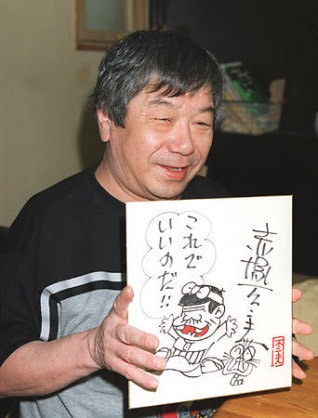 赤塚不二夫
これで
いいのだ!!